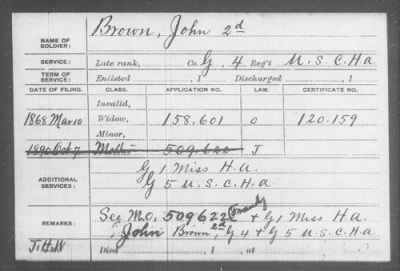 NAME OF SOLDIER: Brown, John 2d
SERVICE: Late rank, Co. G, 4 Reg't U.S.C.H.A.
TERM OF SERVICE: Enlisted , 1 Discharged , 1
DATE OF FILING. CLASS. APPLICATION NO. LAW. CERTIFICATE NO.
Invalid,
1868 Mar 10 Widow, 158.601 O 120.159
Minor,
1890 Oct 7 Mother 509622 J
ADDITIONAL SERVICES: G 1 Miss H.A.
G 5 U.S.C.H.A
REMARKS: See M.O. 509622 + G 1 Miss H.A.
John Brown 2d G 4 + G 5 U.S.C.H.A
Died , 1 , at